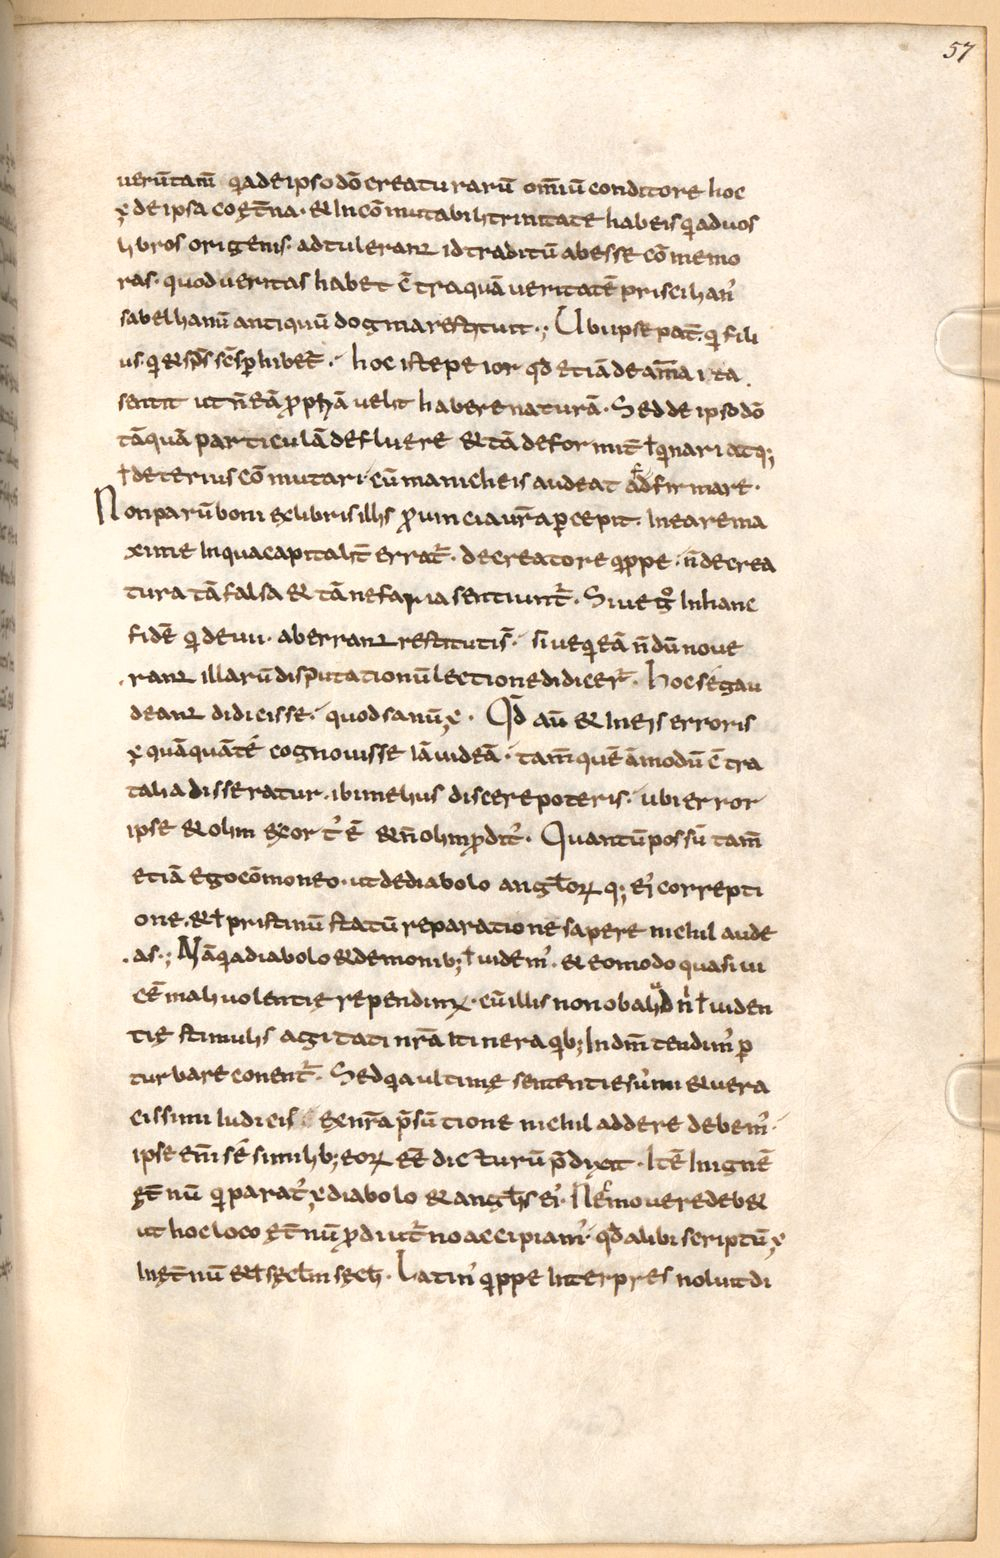 57
uerūtam̄ q̄a de ipso dō creaturarū om̄iū conditore hoc
ē de ipsa coęt̄na · & incōmutabili trinitate habeis q̄i ad uos
libros origenis · adtuleran̄ id traditū abesse cōmemo
ras · quod ueritas habet c̄tra quā ueritatē priscillian᾽
sabellianū antiquū dogma restituit ·; Ubi ipse pat̄ · q̄i fili
us · q̄i & sp̄s sc̄s ꝑhibet᷑ · hoc iste peior qd̄ etiā de anīma ita
sentit ut n̄ eā ꝓp̄riā uelit habere naturā · Sed de ipso dō
tāquā particulā defluere & tā deformit̄ iq̄nari atq;
ł deterius cōmutari · cū manicheis audeat adfirmare ·
Non parū boni ex libris illis ꝓuincia ur̄a ꝑcepit · In ea re ma
xime in qua capitalit̄ errat᷑ · de creatore q̄ippe · n̄ de crea
tura tā falsa & tā nefaria sentiunt᷑ · Siue g̊ in hanc
fidē q̄i deuii · aberran̄ restituti s᷑ · siue q̄i eā n̄dū noue
ran̄ illarū disputationū lectione didicer᷑ · hoc se gau
dean̄ didicisse · quod sanū ē · Qd̄ aū & in eis erroris
ē quāquā te cognouisse iā uideā · tam̄ quēāmodū c̄tra
talia disseratur · ibi melius discere poteris · ubi error
ipse & olim exort᾽ ē & n̄ olim ꝓdit᾽ · Quantū possū tam̄
etiā ego cōmoneo · ut de diabolo angłorꝝ q; ei᾽ correpti
one · & ł pristinū statū reparatione sapere nichil aude
as ·; Nā q̄a diabolo & demonib; ł uidem᾽ · & eo modo quasi ui
cē maliuolentię rependim᾽ · cū illis non ob aliud n᷑ ł uiden
tię stimulis agitati nr̄a itinera q̄ib; in dm̄ tendim᾽ ꝑ
turbare conent᷑ · Sed q̄a ultimę sententię sūmi & uera
cissimi iudicis · ex nr̄a p̄sūtione nichil addere debem᾽ ·
ipse eni᷑ se similib; eorꝝ eē dicturū p̄dixit · Itē in ignē
ęt̄nū q̄i parat᾽ ē diabolo & angłis ei᾽ · Nec mouere deb&
ut hoc loco ęt̄nū ꝓ diut᷑no accipiam᾽ · qd̄ alibi scriptū ē
In ęt̄nū & ł sęcłm sęcłi · Latin᾽ q̄ippe interpres noluit di